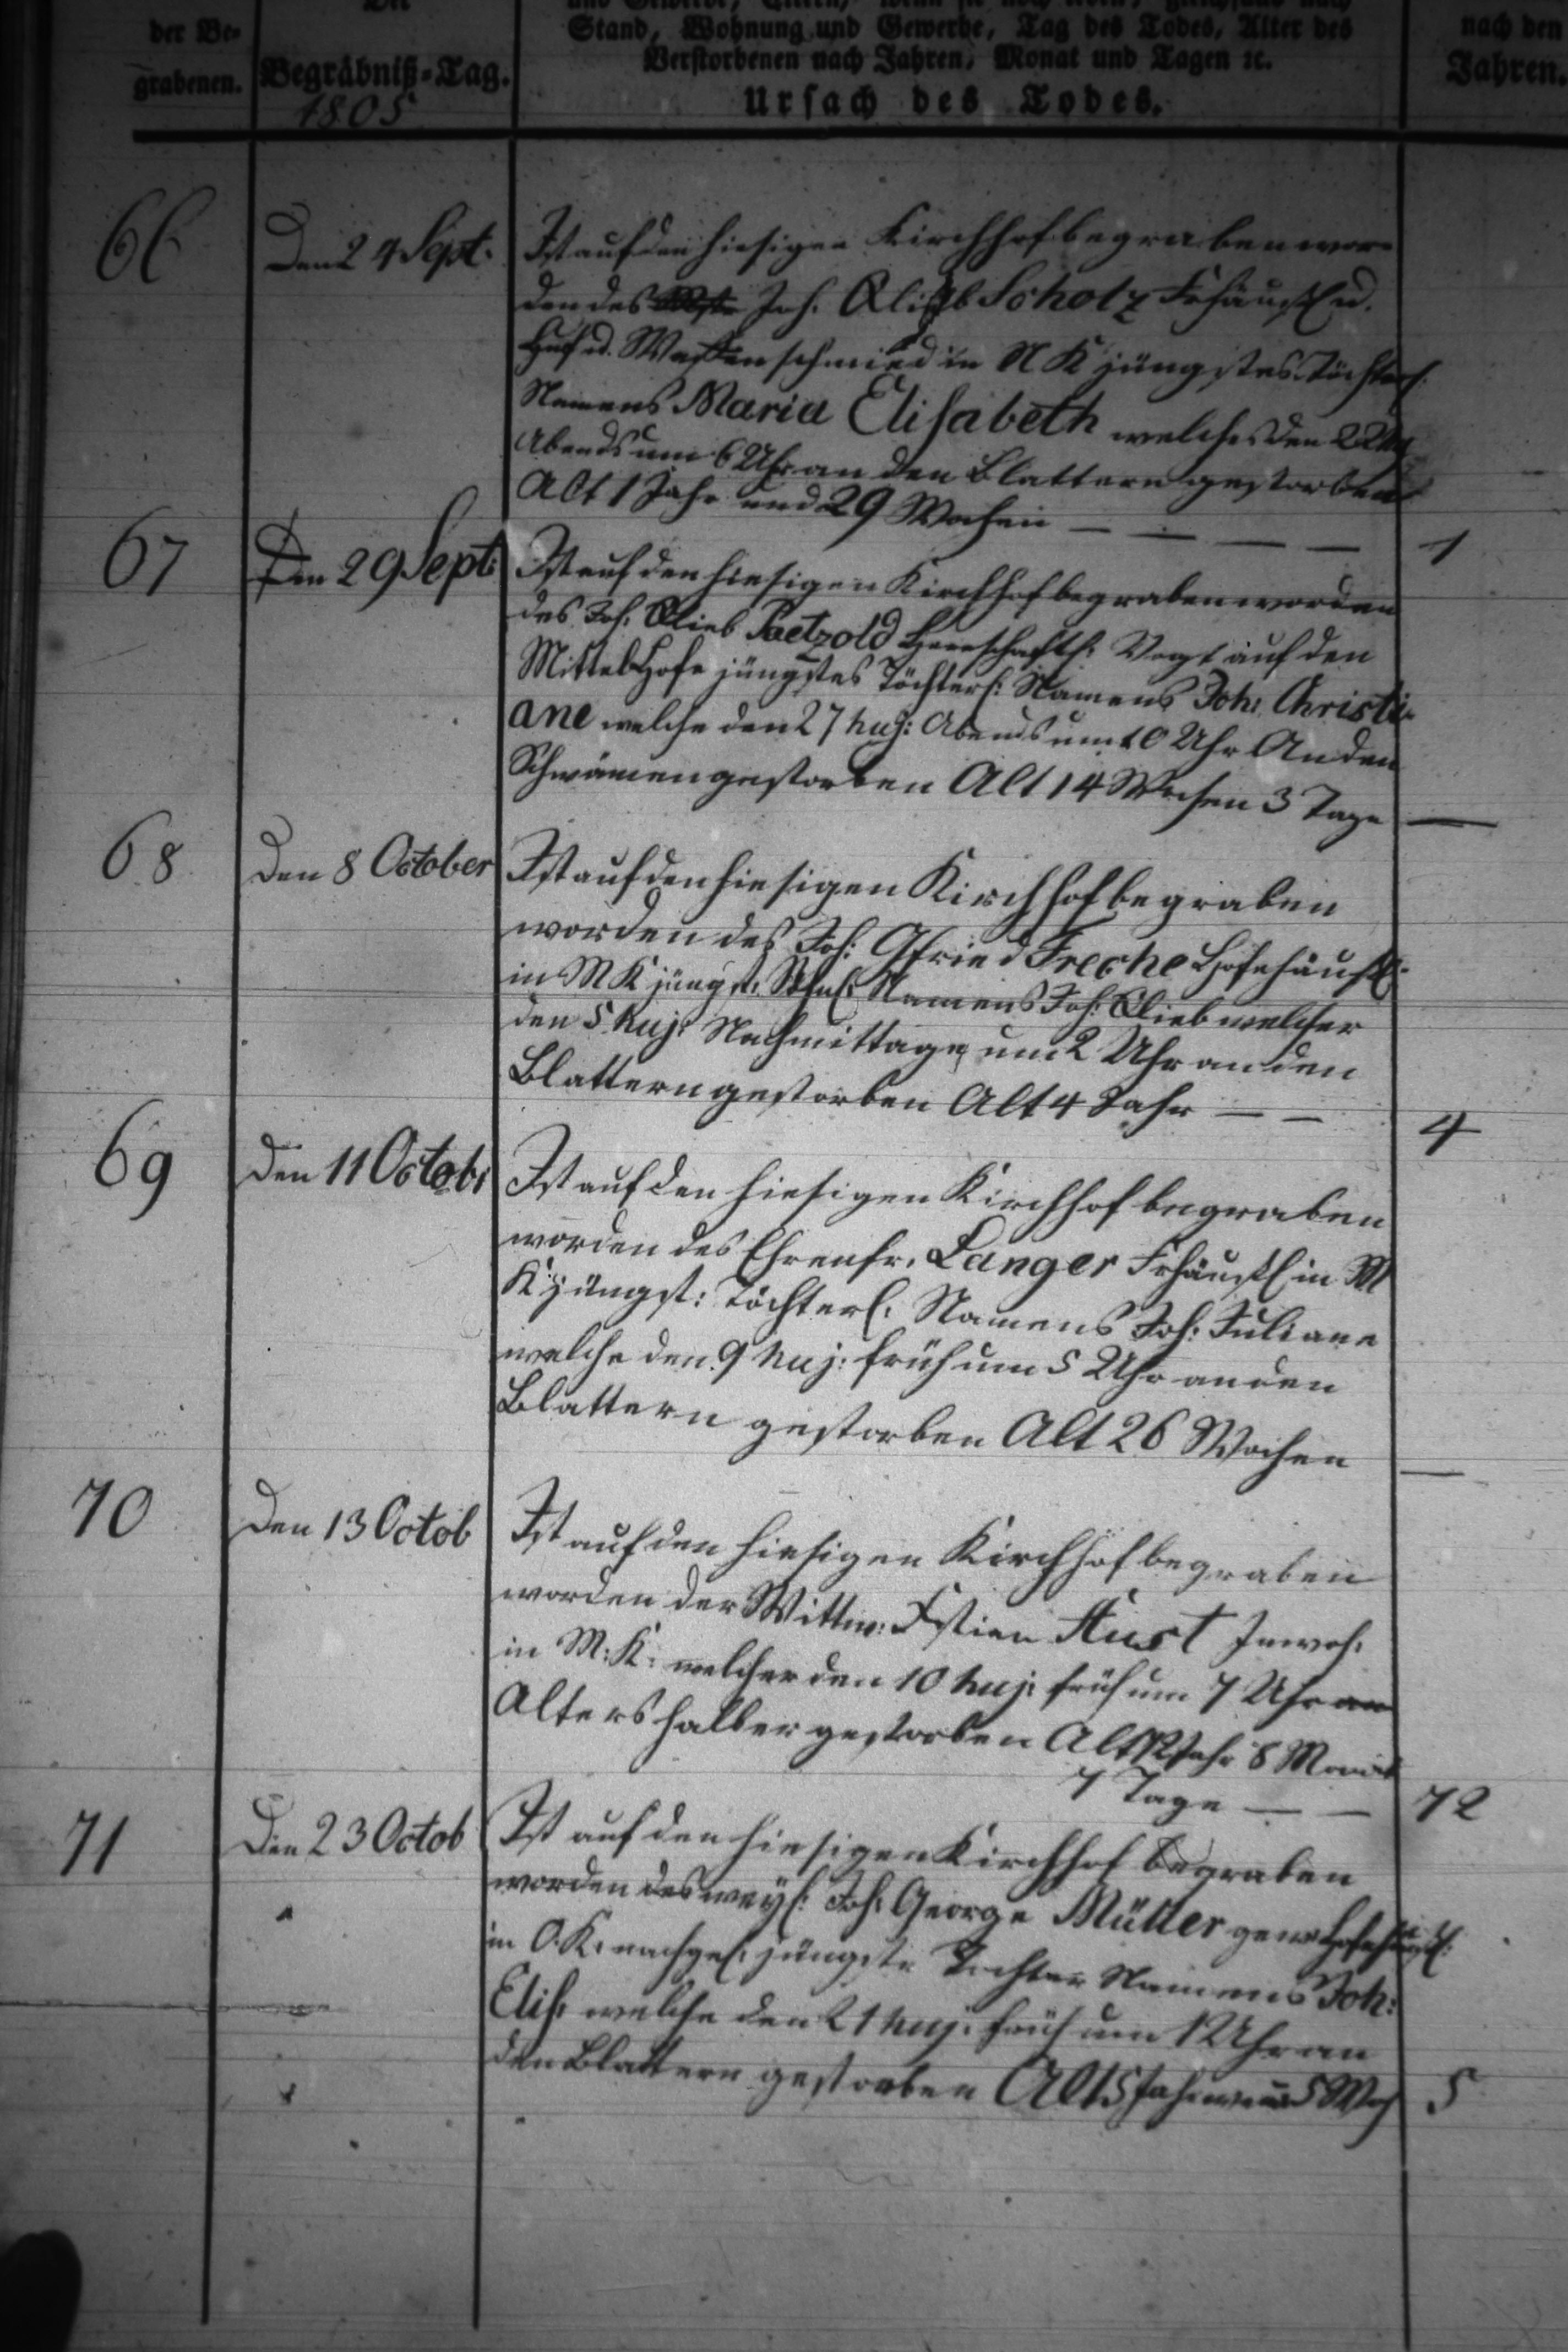 Der
und Gewerbe, Eltern, wenn sie noch leben, gleichfalls nach
der Be-
Stand, Wohnung und Gewerbe, Tag des Todes, Alter des
nach den
grabenen.
Begräbniß-Tag.
Verstorbenen nach Jahren, Monat und Tagen ꝛc.
Jahren.
1805
Ursach des Todes.
66
Den 24 Sept.
Ist auf den hiesigen Kirchhof begraben wor-
den des Joh. Scholz Frhäusl u.
Huf u. Waffenschmied in N K jüngstes Töchterl.
Namens Maria Elisabeth welches den 22
Abends um 6 Uhr an den Blattern gestorben
Alt 1 Jahr und 29 Wochen — — — —
1
67
Den 29 Sept:
Ist auf den hiesigen Kirchhof begraben worden
des Joh: Glieb Paetzold Herrschaftl: Vogt auf den
Mittel Hofe jüngstes Töchterl: Namens Joh: Christi-
ane welche den 27 huj: Abends um 10 Uhr An den
gestorben Alt 14 Wochen 3 Tage
—
68
Den 8 October
Ist auf den hiesigen Kirchhof begraben
worden des Joh: Gfried Freche Hofehäusl:
in M K jüngst: Söhnl: Namens Joh: Glieb welcher
den 5 huj: Nachmittags um 2 Uhr an den
Blattern gestorben Alt 4 Jahr — —
4
69
Den 11 Octobr
Ist auf den hiesigen Kirchhof begraben
worden des Ehrenfr. Langer Frhäusl in M
K jüngst: Töchterl. Namens Joh: Juliane
welche den 9 huj: früh um 5 Uhr an den
Blattern gestorben Alt 26 Wochen
—
70
Den 13 Octob
Ist auf den hiesigen Kirchhof begraben
worden der Wittw: Xstian Aust Inwoh:
in M: K: welcher den 10 huj: früh um 7 Uhr
Alters halber gestorben Alt 72 Jahr 8 Monat
7 Tage — —
72
71
Den 23 Octob
Ist auf den hiesigen Kirchhof begraben
worden des weyl: Joh: George Müller gew: Hofehäusl:
in O. K. nachgel: jüngste Tochter Namens Joh:
Elis: welche den 21 huj: früh um 1 Uhr an
den Blattern gestorben Alt 5 Jahr 5 Woch
5